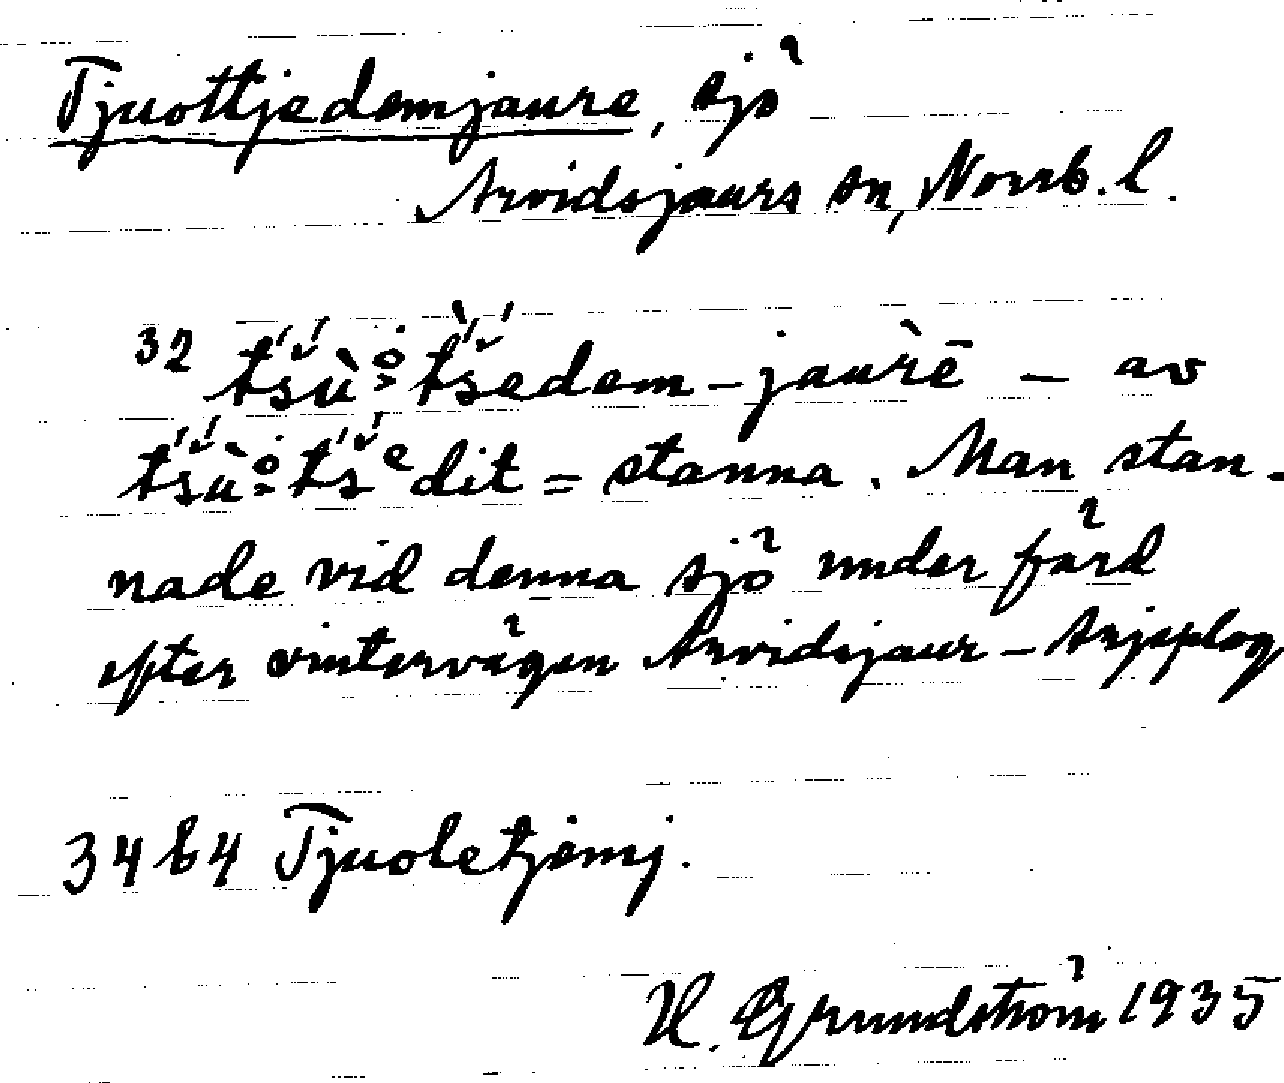 Tjuottjedemjaure, sjö
Arvidsjaurs sn, Norrb. l.
32 t́śù̀o̥t́śedem-jaùrē – av
t́śù̀o̥t́śᵉdit = stanna. Man stan-
nade vid denna sjö under färd
efter vintervägen Arvidsjaur – Arjeplog
34 b4 Tjuoletjemj.
H. Grundström 1935